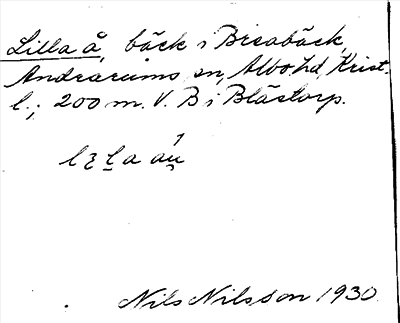 Lilla å, bäck i Breabäck,
Andrarums sn, Albo hd, Krist.
l.; 200 m. V. B i Blåstorp.
Nils Nilsson 1930.